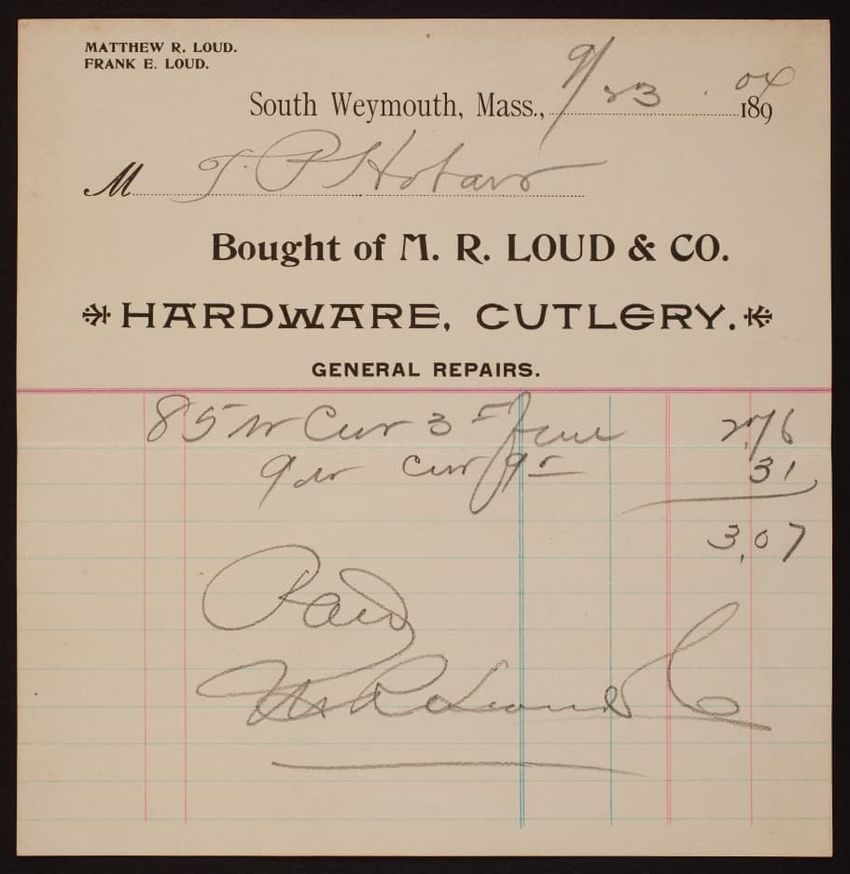 MATTHEW R. LOUD.
FRANK E. LOUD.
9/23 04
South Weymouth, Mass., 189
M T. P Hobart
Bought of M. R. LOUD & CO.
HARDWARE, CUTLERY.
GENERAL REPAIRS.
85 3 2.76
9 31
3.07
Paid
M R Loud & Co